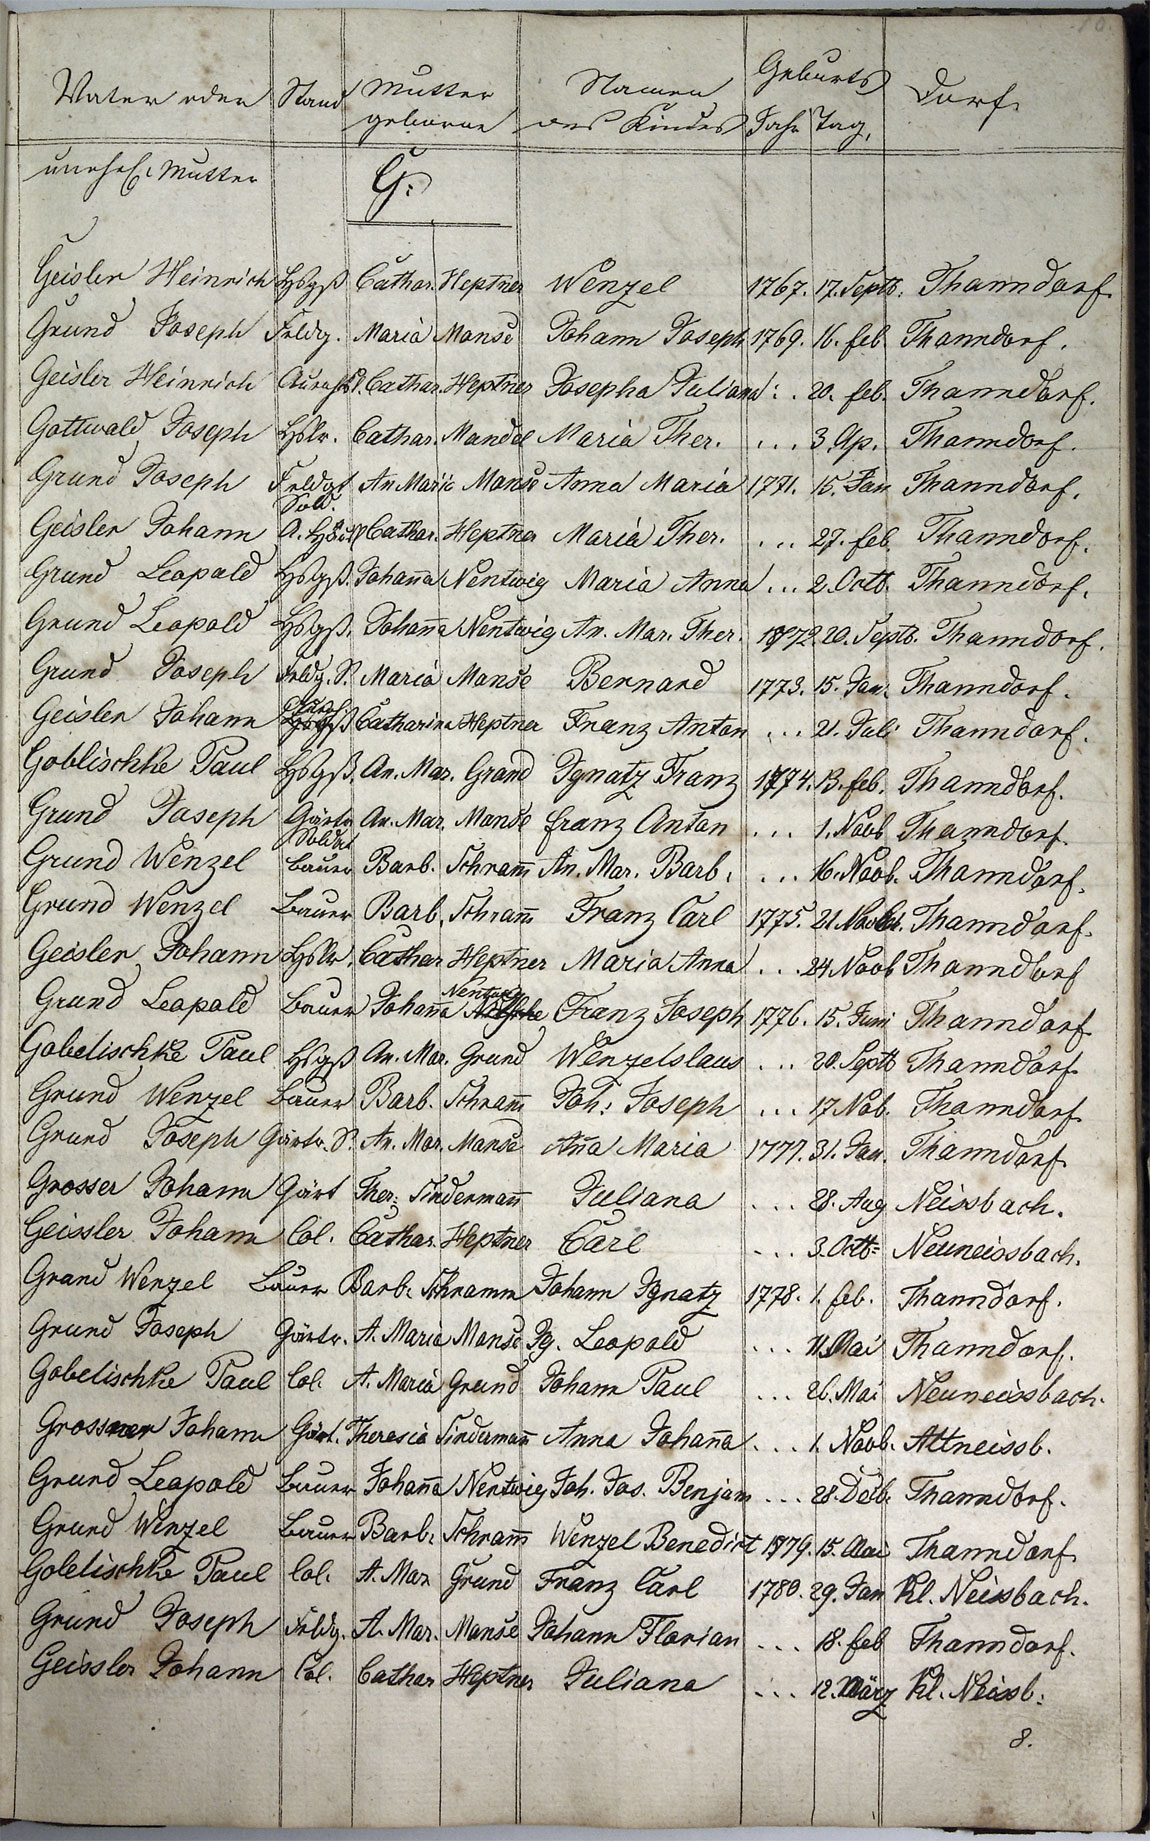 Vater oder Stand Mutter Namen Geburts Dorf
geborne des Kindes Jahr Tag.
unehel. Mutter G:
Geisler Heinrich Hsgß Cathar. Heptner Wenzel 1767. 17. Septb: Thanndorf.
Grund Joseph Feldg. Maria Manse Johann Joseph 1769. 16. feb Thanndorf.
Geisler Heinrich Cathar. Heptner Josepha Juliana : . 20. feb. Thanndorf.
Gottwald Joseph Hslr. Cathar. Mandel Maria Ther. ... 3. Ap. Thanndorf.
Grund Joseph Feldgt An. Marie Manse Anna Maria 1771. 15. Jan Thanndorf.
Sold.
Geisler Johann Cathar. Heptner Maria Ther. ... 27. feb. Thanndorf.
Grund Leopold Hsgß. Johan̄a Nentwig Maria Anna ... 2. Octb. Thanndorf.
Grund Leopold Hsgß. Johan̄a Nentwig An. Mar. Ther. 1772. 20. Septb. Thanndorf.
Grund Joseph Feldg. S. Maria Manse Bernard 1773. 15. Jan: Thanndorf.
Geisler Johann Hsgß Catharina Heptner Franz Anton ... 21. Juli Thanndorf.
Goblischke Paul Hsgß. An. Mar. Grand Ignatz Franz 1774. 13. feb. Thanndorf.
Grund Joseph Gärtn An. Mar. Manse franz Anton ... 1. Novb Thanndorf.
Soldat
Grund Wenzel Bauer Barb. Schram̄ An. Mar. Barb. ... 16. Novb. Thanndorf.
Grund Wenzel Bauer Barb. Schram̄ Franz Carl 1775. 21. Thanndorf.
Geisler Johann Hslr. Cathar Heptner Maria Anna ... 24 Novb Thanndorf
Nentwig
Grund Leopold Bauer Johan̄a Franz Joseph 1776. 15. Juni Thanndorf.
Gobelischke Paul Hsgß An. Mar. Grund Wenzelslaus ... 20. Septb Thanndorf.
Grund Wenzel Bauer Barb. Schram̄ Joh: Joseph ... 17 Nob. Thanndorf.
Grund Joseph Gärtn. S. An. Mar. Manse An̄a Maria 1777. 31. Jan. Thanndorf.
Grosser Johann Gärt Ther: Tinderman̄ Juliana ... 28. Aug Neissbach.
Geissler Johann Col. Cathar. Heptner Carl ... 3. Octb= Neuneissbach.
Grand Wenzel Bauer Barb. Schramm Johann Ignatz 1778. 1. feb. Thanndorf.
Grund Joseph Gärtn. A. Maria Manse Ig. Leopold ... 11. Mai Thanndorf.
Gobelischke Paul Col. A. Maria Grund Johann Paul ... 26. Mai Neuneissbach.
Grossner Johann Gärt. Theresia Tinderman̄ Anna Johan̄a ... 1. Novb. Altneissb.
Grund Leopold Bauer Johan̄a Nentwig Joh. Jos. Benjam ... 28. Deb. Thanndorf.
Grund Wenzel Bauer Barb. Schram̄ Wenzel Benedict 1779. 15. Mai Thanndorf.
Gobelischke Paul Col. A. Mar Grund Franz Carl 1780. 29. Jan Kl. Neissbach.
Grund Joseph Feldg. A. Mar. Manse Johann Florian ... 18. feb Thanndorf.
Geissler Johann Col. Cathar Heptner Juliana ... 12. März Kl. Neissb:
8.